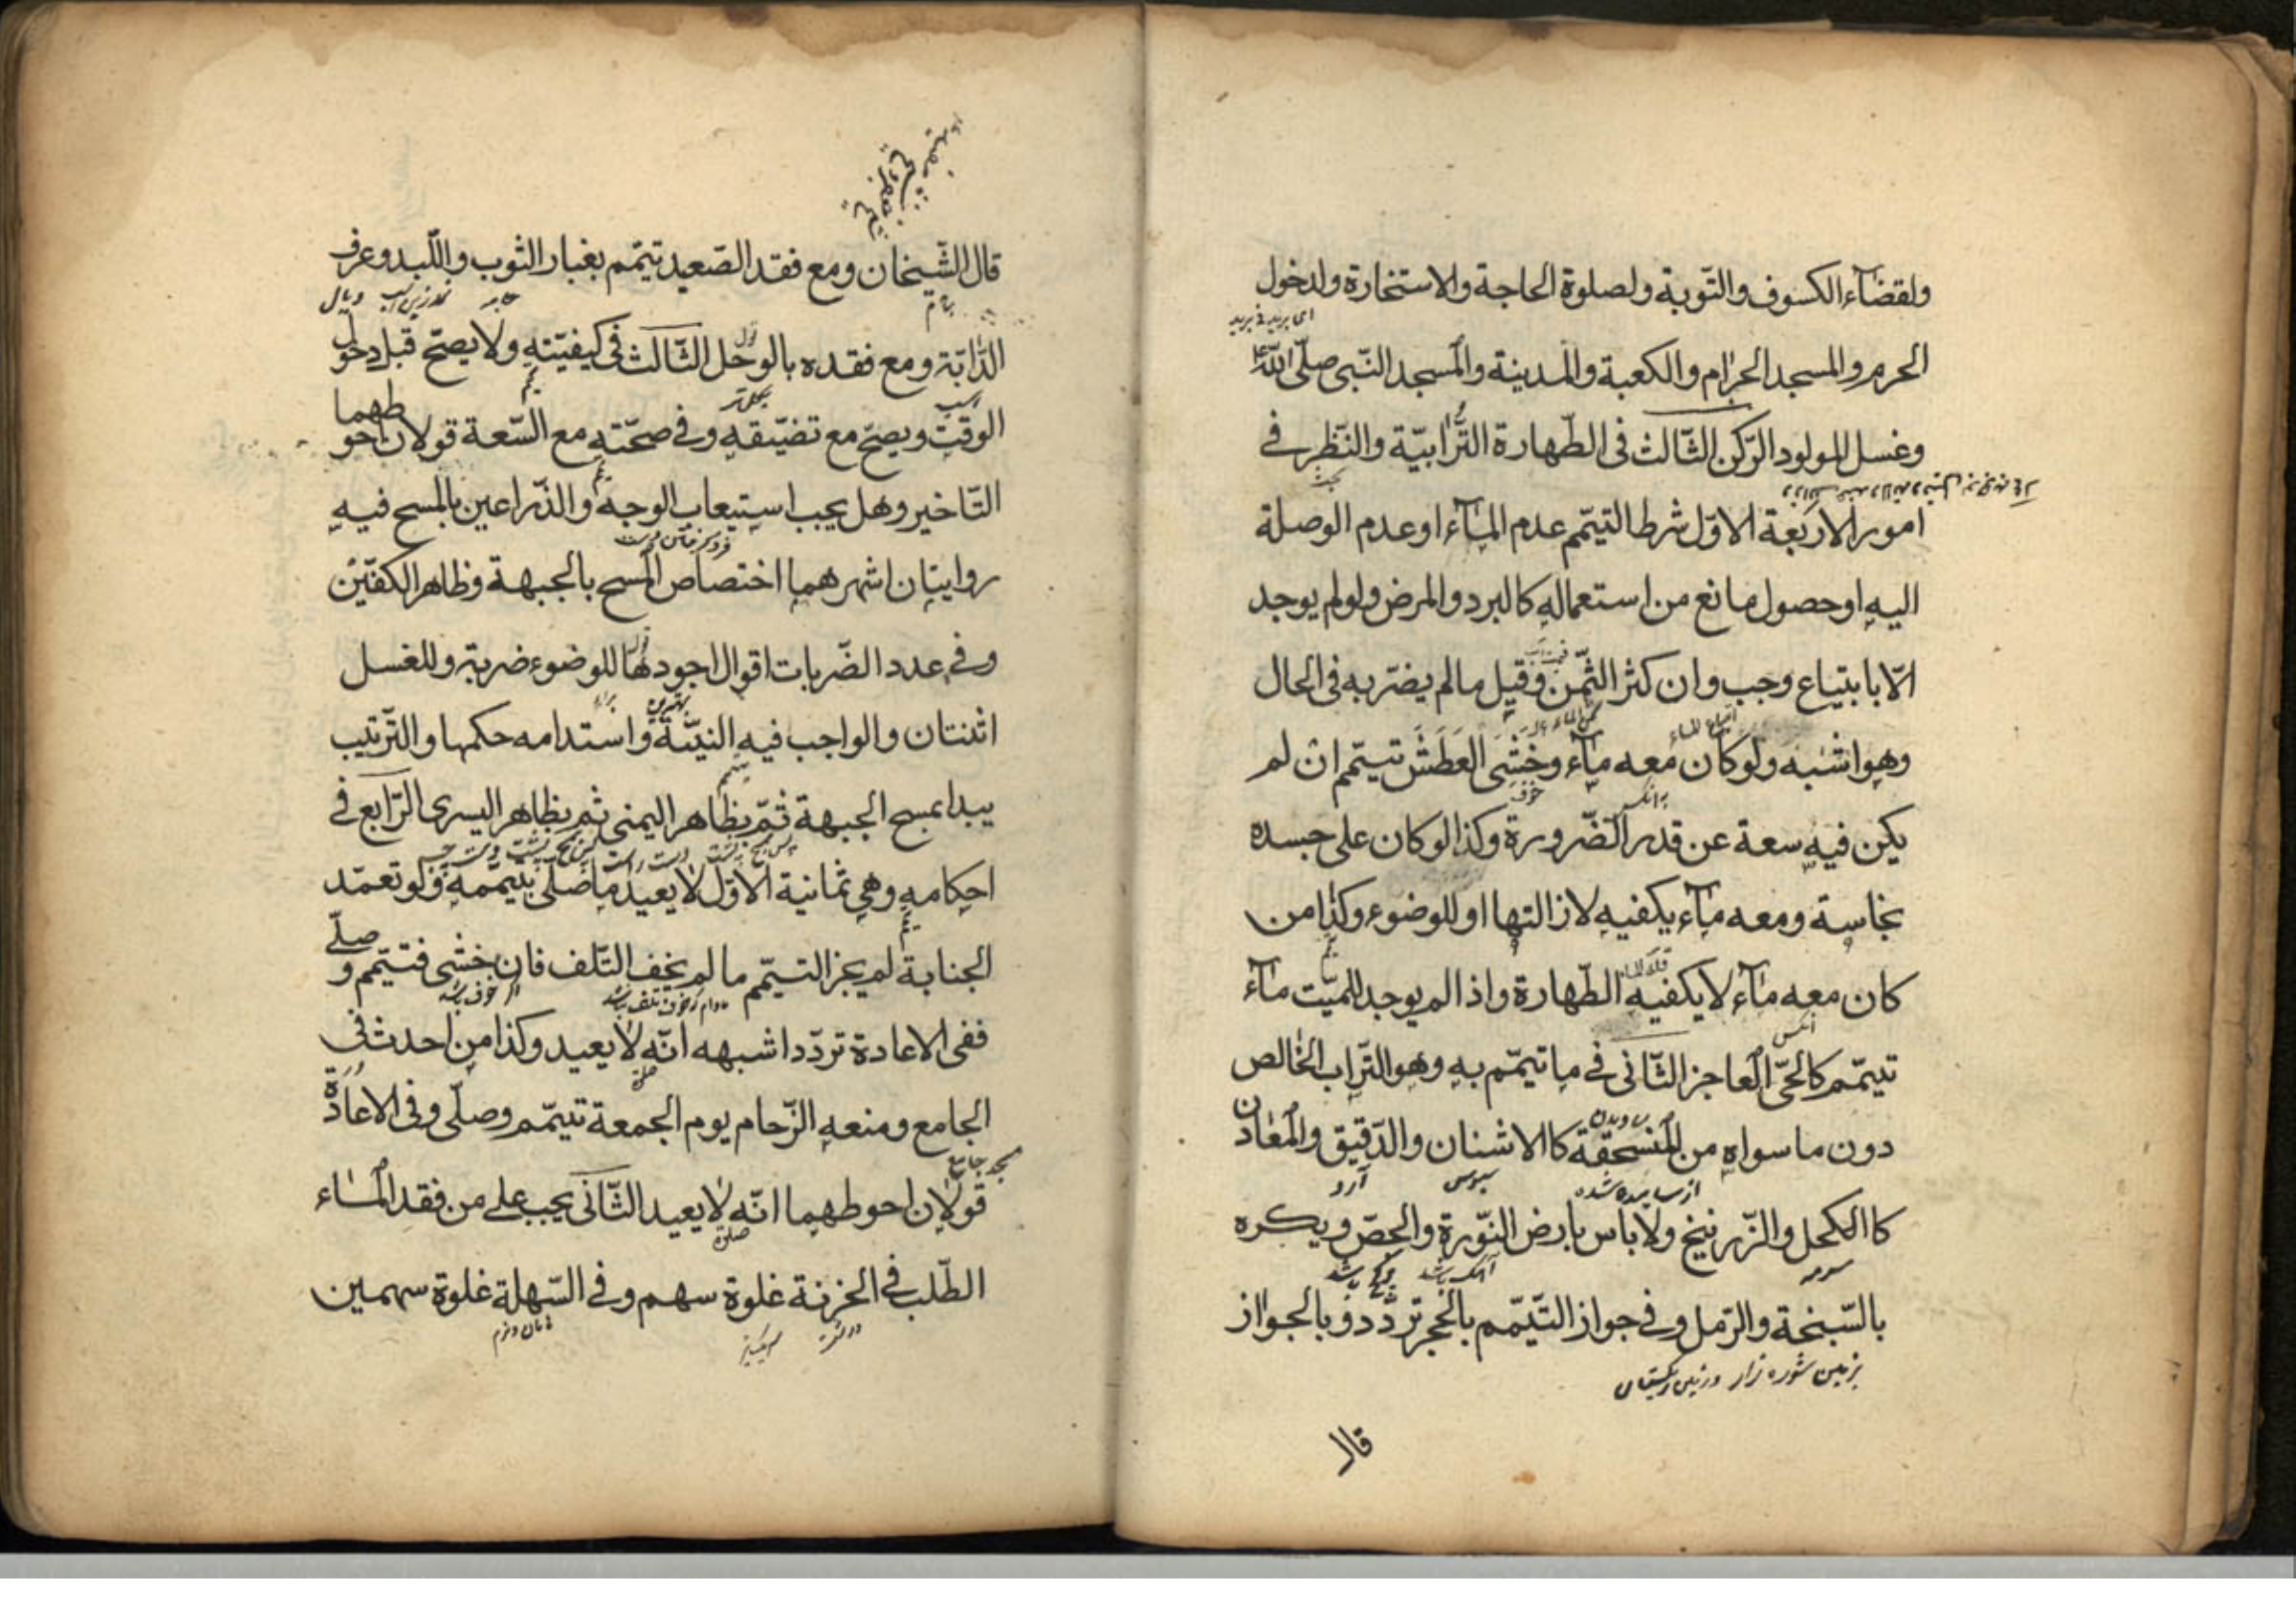 ولقضآء الكسوف والتّوبة ولصلوة الحاجة والاستخارة ولدخول
الحرم والمسجد الحرام والكعبة والمدينة والمسجد النّبى صلّى اللّه
وغسل المولود الرّكن الثّالث فى الطّهارة التُّرابيّة والنّظر فے
امور الاربعة الاوّل شرط التيمّم عدم المآء او عدم الوصلة
اليه او حصول مانع من استعماله كالبرد والمرض ولو لم يوجد
الّا بابتياع وجب وان كثر الثّمن وقيل مالم يضرّ به فى الحال
وهو اشبه ولو كان معه مآء وخشى العَطَشَ تيمّم ان لم
يكن فيه سعة عن قدر الضّرورة وكذا لو كان على جسده
نجاسة ومعه مآء يكفيه لازالتها او للوضوء وكذا من
كان معه مآء لا يكفيه الطّهارة واذا لم يوجد للميّت مآء
تيمّم كالحىّ العاجز الثّانى فے ما تيمّم به وهو التّراب الخالص
دون ما سواه من المنسحقة كالاشنان والدّقيق والمعادن
از ساييده شده سبوس آرد
كالكحل والزّرنيخ ولا باس بارض النّورة والجصّ ويكره
سرمه آهك باشد
بالسّبخة والرّمل وفے جواز التّيمّم بالحجر تردّد وبالجواز
بزمين شوره زار وزمين ريكستان
قال
قال الشّيخان ومع فقد الصّعيد تيمّم بغبار الثوب واللّبد وعرف
جامه نمد زين اسب ويال
الدّابّة ومع فقده بالوحل الثّالث فى كيفيّته ولا يصحّ قبل دخول
اسب
الوقت ويصحّ مع تضيّقه وفے صحّته مع السّعة قولان احوطهما
التّاخير وهل يجب استيعاب الوجه والذّراعين بالمسح فيه
روايتان اشهرهما اختصاص المسح بالجبهة وظاهر الكفّين
وفے عدد الضّربات اقوال اجودها للوضوء ضربة وللغسل
اثنتان والواجب فيه النيّة واستدامه حكمها والتّرتيب
يبدا بمسح الجبهة ثمّ بظاهر اليمنى ثم بظاهر اليسرى الرّابع فے
احكامه وهى ثمانية الاوّل لا يعيد ما صلّى بتيمّمه ولو تعمّد
الجنابة لم يجز التيمّم ما لم يخف التّلف فان خشى فتيمّم وصلّے
مادام كه خوف تلف نباشد اگر خوف باشد
ففى الاعادة تردّد اشبهه انّه لا يعيد وكذا من احدث فى
صلوة
الجامع ومنعه الزّحام يوم الجمعة تيمّم وصلّى وفى الاعادة
مسجد جامع
قولان احوطهما انّه لا يعيد الثّانى يجب على من فقد المآء
صلوة
الطّلب فے الحزنة غلوة سهم وفے السّهلة غلوة سهمين